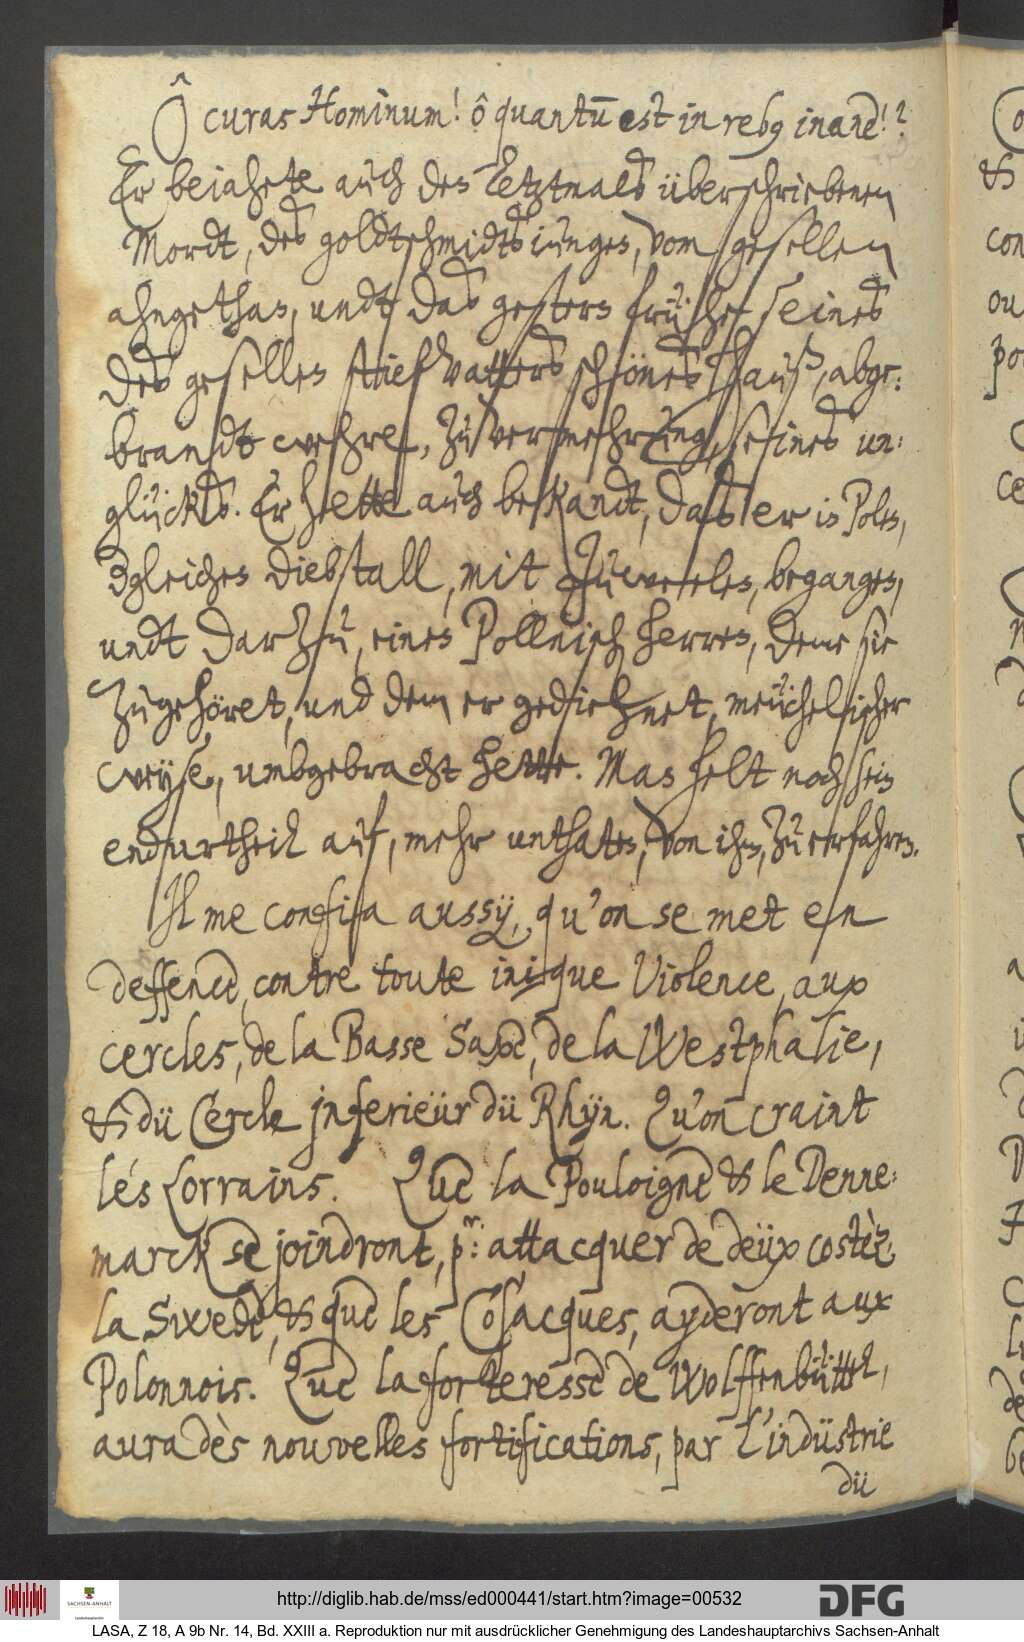 Ô curas Hominum! ô quantū est in rebg inane!?
Er beiahete auch den letztmals überschriebenen
Mordt, des goldtschmidts iungen, vom gesellen
ahngethan, undt das gestern früher seines
des gesellen stief Vatters schönes hauß, abge:
brandt wehre, zu vermehrung, seines un:
glücks. Er hette auch bekandt, das er in Polen,
dgleichen diebstall, mit Juwehelen, begangen,
undt darzu, einen Pollnisch herren, deme sie
zugehöret, und dem er gediehnet, meüchelischer
weyse, umbgebracht hette. Man helt noch sein
endurtheil auf, mehr unthaten, von ihm, zu erfahren.
Il me confia aussÿ, qu'on se met en
deffence, contre toute inique Violence, aux
cercles, de la Basse Saxe, de la Westphalie,
& dü Cercle jnferieür dü Rhÿn. Qu'on craint
lés Lorrains. Que la Pouloigne & le Denne:
marck se joindront, pr: attacquer de deüx costèz
la Swede, & que les Cosacques, ayderont aux
Polonnois. Que la forteresse de Wolffenbüttel,
aura dès nouvelles fortifications, par l'indüstrie
dü
http://diglib.hab.de/mss/ed000441/start.htm?image=00532
SACHSEN-ANHALT
Landeshauptarchiv
DFG
LASA, Z 18, A 9b Nr. 14, Bd. XXIII a. Reproduktion nur mit ausdrücklicher Genehmigung des Landeshauptarchivs Sachsen-Anhalt